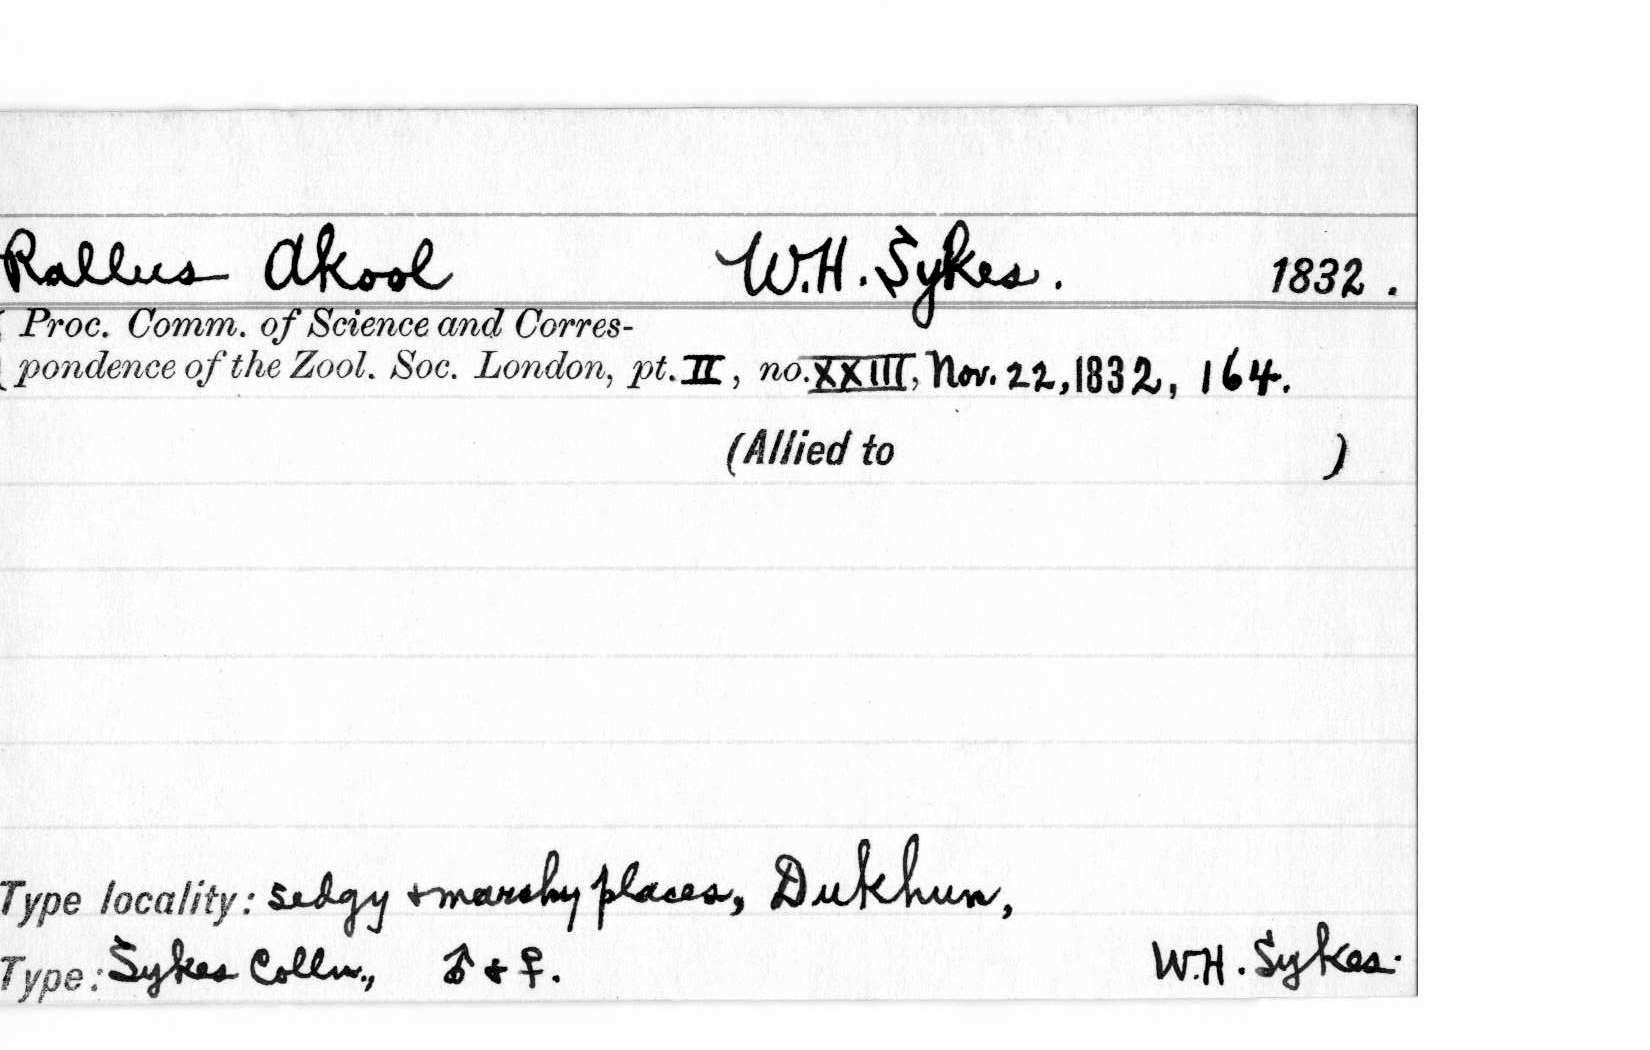 Rallus Akool W.H. Sykes. 1832.
Proc. Comm. of Science and Corres-
pondence of the Zool. Soc. London, pt. II, no. XXIII, Nov. 22, 1832, 164.
(Allied to )
Type locality: sedgy & marshy places, Dukhun,
Type: Sykes Colln., ♂ & ♀. W.H. Sykes.